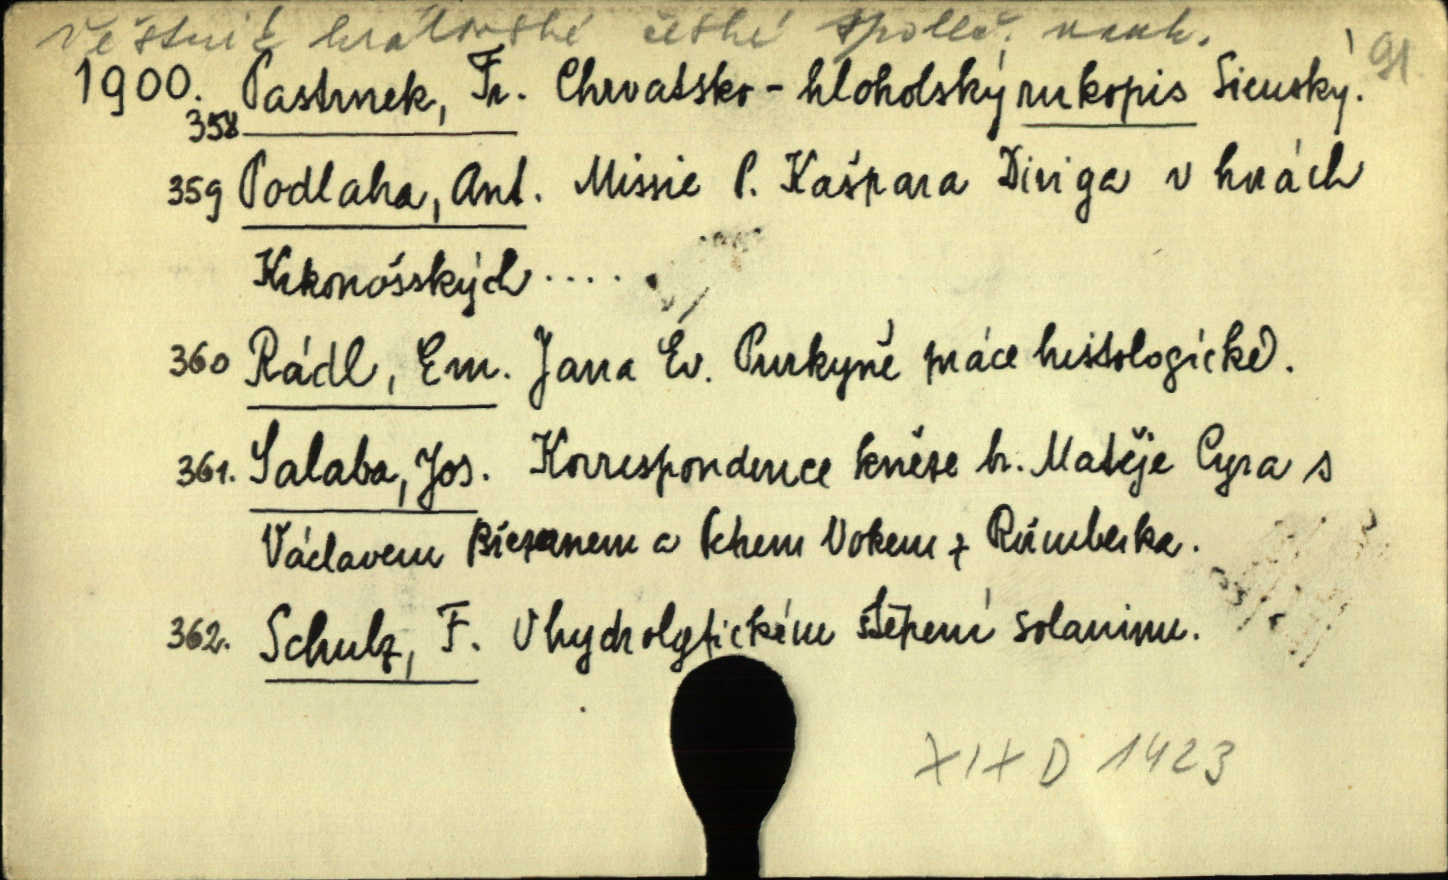 Věstník královské české společ. nauk. 91.
1900. Pastrnek, Fr. Chrvatsko-hloholský rukopis Sienský.
358
359 Podlaha, Ant. Missie P. Kašpara Diriga v horách
Krkonošských ....
360 Rádl, Em. Jana Ev. Purkyně práce histologické.
361. Salaba, Jos. Korrespondence kněze br. Matěje Cyra s
Václavem Březanem a Petrem Vokem z Růmberka.
362. Schulz, F. O hydrolytickém štěpení solaninu.
XIX D 1423